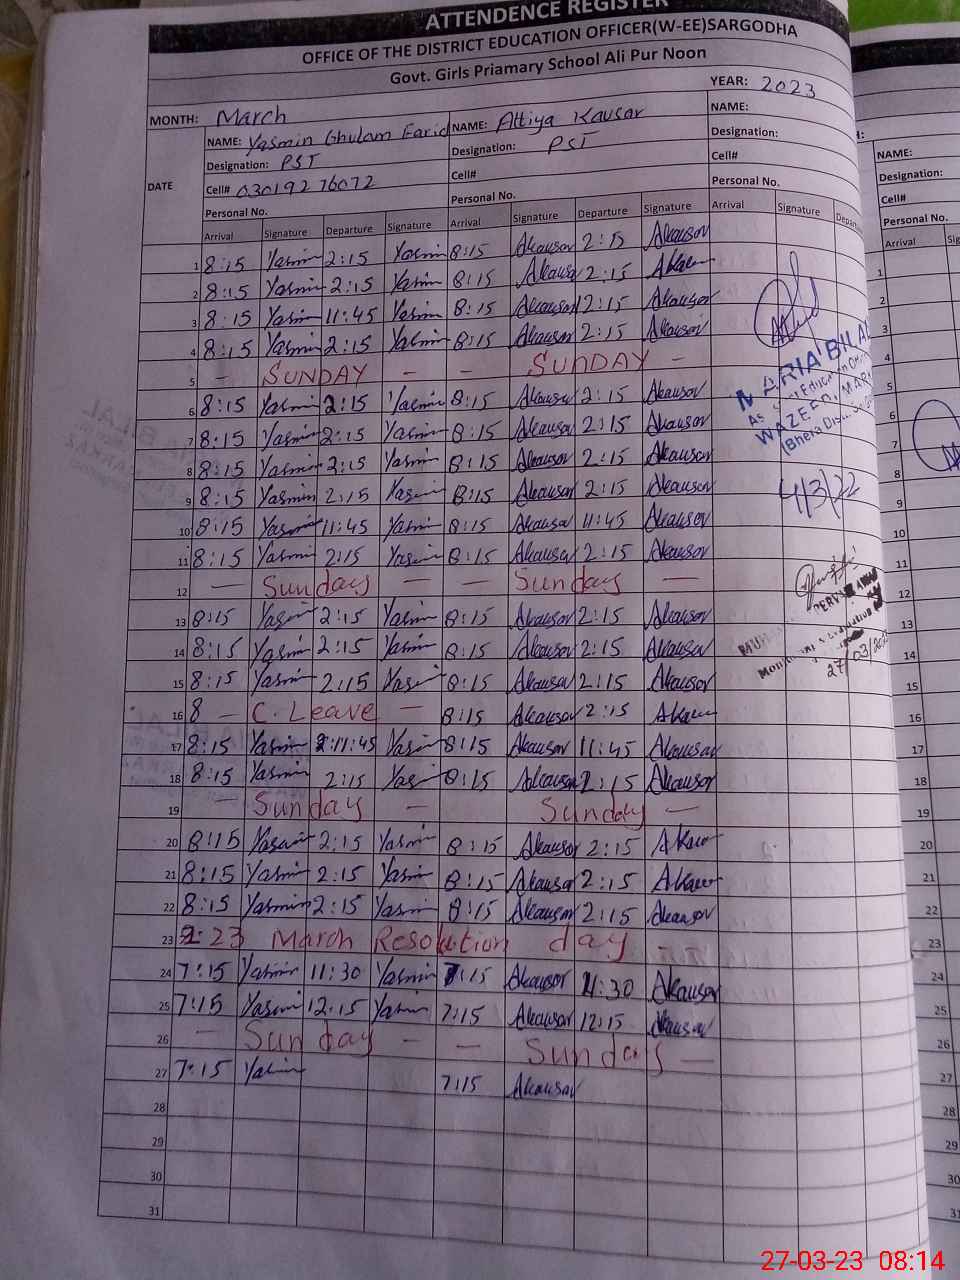 ATTENDENCE REGISTER
OFFICE OF THE DISTRICT EDUCATION OFFICER(W-EE)SARGODHA
Govt. Girls Priamary School Ali Pur Noon
MONTH: March YEAR: 2023
NAME: Yasmin Ghulam Farid NAME: Attiya Kausar NAME:
Designation: PST Designation: PST Designation:
DATE Cell# 03019276072 Cell# Cell#
Personal No. Personal No. Personal No.
Arrival Signature Departure Signature Arrival Signature Departure Signature Arrival Signature Depar
1 8:15 Yasmin 2:15 Yasmin 8:15 Akausar 2:15 Akausar
2 8:15 Yasmin 2:15 Yasmin 8:15 Akausar 2:15
3 8:15 Yasmin 11:45 Yasmin 8:15 Akausar 12:15 Akausar
4 8:15 Yasmin 2:15 Yasmin 8:15 Akausar 2:15 Akausar
5 - SUNDAY - - SUNDAY -
6 8:15 Yasmin 2:15 Yasmin 8:15 Akausar 2:15 Akausar
7 8:15 Yasmin 2:15 Yasmin 8:15 Akausar 2:15 Akausar
8 8:15 Yasmin 2:15 Yasmin 8:15 Akausar 2:15 Akausar
9 8:15 Yasmin 2:15 Yasmin 8:15 Akausar 2:15 Akausar
10 8:15 Yasmin 11:45 Yasmin 8:15 Akausar 11:45 Akausar
11 8:15 Yasmin 2:15 Yasmin 8:15 Akausar 2:15 Akausar
12 - Sunday - - Sunday -
13 8:15 Yasmin 2:15 Yasmin 8:15 Akausar 2:15 Akausar
14 8:15 Yasmin 2:15 Yasmin 8:15 Akausar 2:15 Akausar
15 8:15 Yasmin 2:15 Yasmin 8:15 Akausar 2:15 Akausar
16 8 - C. Leave - 8:15 Akausar 2:15
17 8:15 Yasmin 11:45 Yasmin 8:15 Akausar 11:45 Akausar
18 8:15 Yasmin 2:15 Yas 8:15 Akausar 2:15 Akausar
19 - Sunday - Sunday -
20 8:15 Yasmin 2:15 Yasmin 8:15 Akausar 2:15
21 8:15 Yasmin 2:15 Yasmin 8:15 Akausar 2:15
22 8:15 Yasmin 2:15 Yasmin 8:15 Akausar 2:15 Akausar
23 23 March Resolution day -
24 7:15 Yasmin 11:30 Yasmin 7:15 Akausar 11:30 Akausar
25 7:15 Yasmin 12:15 Yasmin 7:15 Akausar 12:15 Akausar
26 - Sunday - - Sunday -
27 7:15 Yasmin 7:15 Akausar
28
29
30
31
MARIA BILAL
(Bhera Dis
4/3/22
27/03/202
NAME:
Designation:
Cell#
Personal No.
Arrival Sig
1
2
3
4
5
6
7
8
9
10
11
12
13
14
15
16
17
18
19
20
21
22
23
24
25
26
27
28
29
30
31
27-03-23 08:14